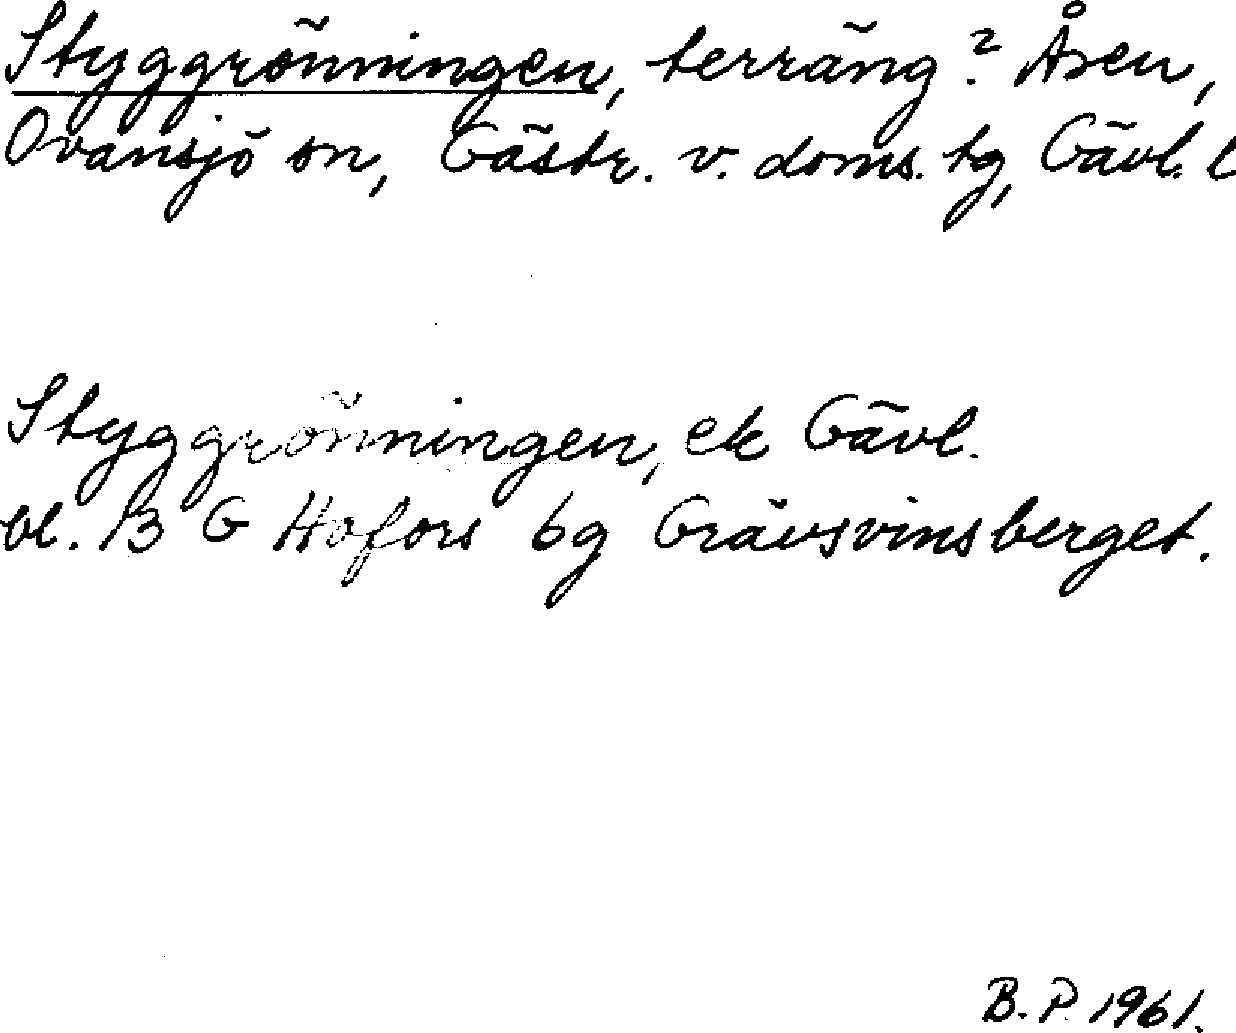 Styggrönningen, terräng? Åsen,
Ovansjö sn, Gästr. v. doms. tg, Gävl. l
Styggrönningen, ek Gävl.
bl. B G Hofors bg Grävsvinsberget.
B. P. 1961.